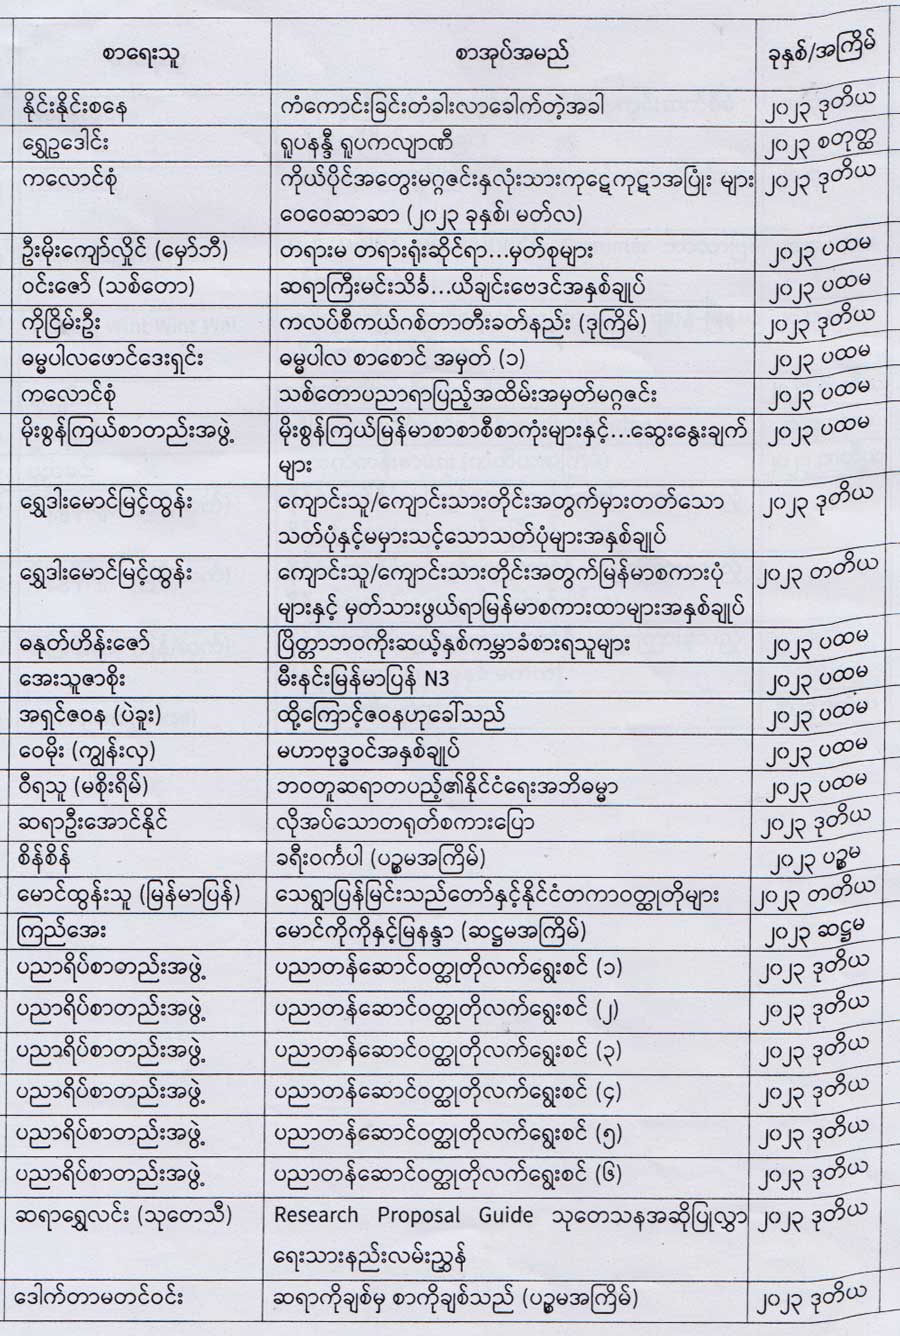 စာရေးသူ စာအုပ်အမည် ခုနှစ်/အကြိမ်
နိုင်းနိုင်းစနေ ကံကောင်းခြင်းတံခါးလာခေါက်တဲ့အခါ ၂၀၂၃ ဒုတိယ
ရွှေဥဒေါင်း ရူပနန္ဒီ ရူပကလျာဏီ ၂၀၂၃ စတုတ္ထ
ကလောင်စုံ ကိုယ်ပိုင်အတွေးမဂ္ဂဇင်းနှလုံးသားကုဋေကုဋာအပြုံး များ ၂၀၂၃ ဒုတိယ
ဝေဝေဆာဆာ (၂၀၂၃ ခုနှစ်၊ မတ်လ)
ဦးမိုးကျော်လှိုင် (မှော်ဘီ) တရားမ တရားရုံးဆိုင်ရာ...မှတ်စုများ ၂၀၂၃ ပထမ
ဝင်းဇော် (သစ်တော) ဆရာကြီးမင်းသိင်္ခ...ယိချင်းဗေဒင်အနှစ်ချုပ် ၂၀၂၃ ပထမ
ကိုငြိမ်းဦး ကလပ်စီကယ်ဂစ်တာတီးခတ်နည်း (ဒုကြိမ်) ၂၀၂၃ ဒုတိယ
ဓမ္မပါလဖောင်ဒေးရှင်း ဓမ္မပါလ စာစောင် အမှတ် (၁) ၂၀၂၃ ပထမ
ကလောင်စုံ သစ်တောပညာရာပြည့်အထိမ်းအမှတ်မဂ္ဂဇင်း ၂၀၂၃ ပထမ
မိုးစွန်ကြယ်စာတည်းအဖွဲ့ မိုးစွန်ကြယ်မြန်မာစာစာစီစာကုံးများနှင့်...ဆွေးနွေးချက် ၂၀၂၃ ပထမ
များ
ရွှေဒါးမောင်မြင့်ထွန်း ကျောင်းသူ/ကျောင်းသားတိုင်းအတွက်မှားတတ်သော ၂၀၂၃ ဒုတိယ
သတ်ပုံနှင့်မမှားသင့်သောသတ်ပုံများအနှစ်ချုပ်
ရွှေဒါးမောင်မြင့်ထွန်း ကျောင်းသူ/ကျောင်းသားတိုင်းအတွက်မြန်မာစကားပုံ ၂၀၂၃ တတိယ
များနှင့် မှတ်သားဖွယ်ရာမြန်မာစကားထာများအနှစ်ချုပ်
ဓနုတ်ဟိန်းဇော် ပြိတ္တာဘဝကိုးဆယ့်နှစ်ကမ္ဘာခံစားရသူများ ၂၀၂၃ ပထမ
အေးသူဇာစိုး မီးနင်းမြန်မာပြန် N3 ၂၀၂၃ ပထမ
အရှင်ဇဝန (ပဲခူး) ထို့ကြောင့်ဇဝနဟုခေါ်သည် ၂၀၂၃ ပထမ
ဝေမိုး (ကျွန်းလှ) မဟာဗုဒ္ဓဝင်အနှစ်ချုပ် ၂၀၂၃ ပထမ
ဝီရသူ (မစိုးရိမ်) ဘဝတူဆရာတပည့်၏နိုင်ငံရေးအဘိဓမ္မာ ၂၀၂၃ ပထမ
ဆရာဦးအောင်နိုင် လိုအပ်သောတရုတ်စကားပြော ၂၀၂၃ ဒုတိယ
စိန်စိန် ခရီးဝင်္ကပါ (ပဉ္စမအကြိမ်) ၂၀၂၃ ပဉ္စမ
မောင်ထွန်းသူ (မြန်မာပြန်) သေရွာပြန်မြင်းသည်တော်နှင့်နိုင်ငံတကာဝတ္ထုတိုများ ၂၀၂၃ တတိယ
ကြည်အေး မောင်ကိုကိုနှင့်မြနန္ဒာ (ဆဋ္ဌမအကြိမ်) ၂၀၂၃ ဆဋ္ဌမ
ပညာရိပ်စာတည်းအဖွဲ့ ပညာတန်ဆောင်ဝတ္ထုတိုလက်ရွေးစင် (၁) ၂၀၂၃ ဒုတိယ
ပညာရိပ်စာတည်းအဖွဲ့ ပညာတန်ဆောင်ဝတ္ထုတိုလက်ရွေးစင် (၂) ၂၀၂၃ ဒုတိယ
ပညာရိပ်စာတည်းအဖွဲ့ ပညာတန်ဆောင်ဝတ္ထုတိုလက်ရွေးစင် (၃) ၂၀၂၃ ဒုတိယ
ပညာရိပ်စာတည်းအဖွဲ့ ပညာတန်ဆောင်ဝတ္ထုတိုလက်ရွေးစင် (၄) ၂၀၂၃ ဒုတိယ
ပညာရိပ်စာတည်းအဖွဲ့ ပညာတန်ဆောင်ဝတ္ထုတိုလက်ရွေးစင် (၅) ၂၀၂၃ ဒုတိယ
ပညာရိပ်စာတည်းအဖွဲ့ ပညာတန်ဆောင်ဝတ္ထုတိုလက်ရွေးစင် (၆) ၂၀၂၃ ဒုတိယ
ဆရာရွှေလင်း (သုတေသီ) Research Proposal Guide သုတေသနအဆိုပြုလွှာ ၂၀၂၃ ဒုတိယ
ရေးသားနည်းလမ်းညွှန်
ဒေါက်တာမတင်ဝင်း ဆရာကိုချစ်မှ စာကိုချစ်သည် (ပဉ္စမအကြိမ်) ၂၀၂၃ ဒုတိယ